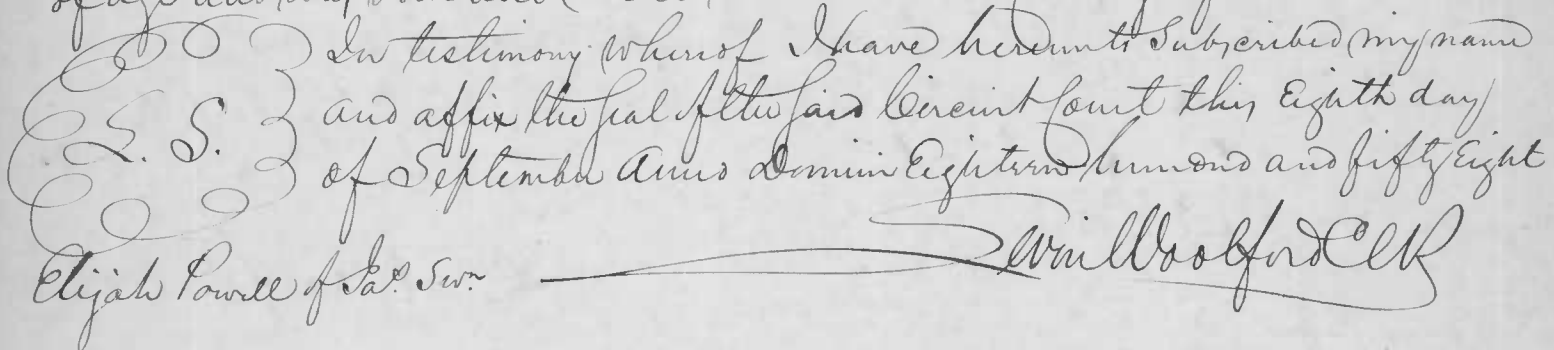 of age and
In testimony whereof I have hereunto Subscribed my name
and affix the Seal of the Said Circuit Court this Eighth day
L. S.
of September Anno Domini Eighteen hundred and fifty Eight
Levin Woolford Clk
Elijah Powell of Jas. Swn